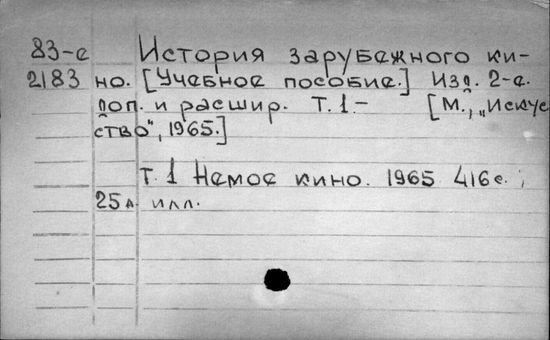 83-е История зарубежного ки-
2183 но. [Учебное пособие.] Изд. 2-е.
доп. и расшир. Т. 1.- [М., „Искус
ство“, 1965.]
Т. 1 Немое кино. 1965 416 с. ;
25 л илл.